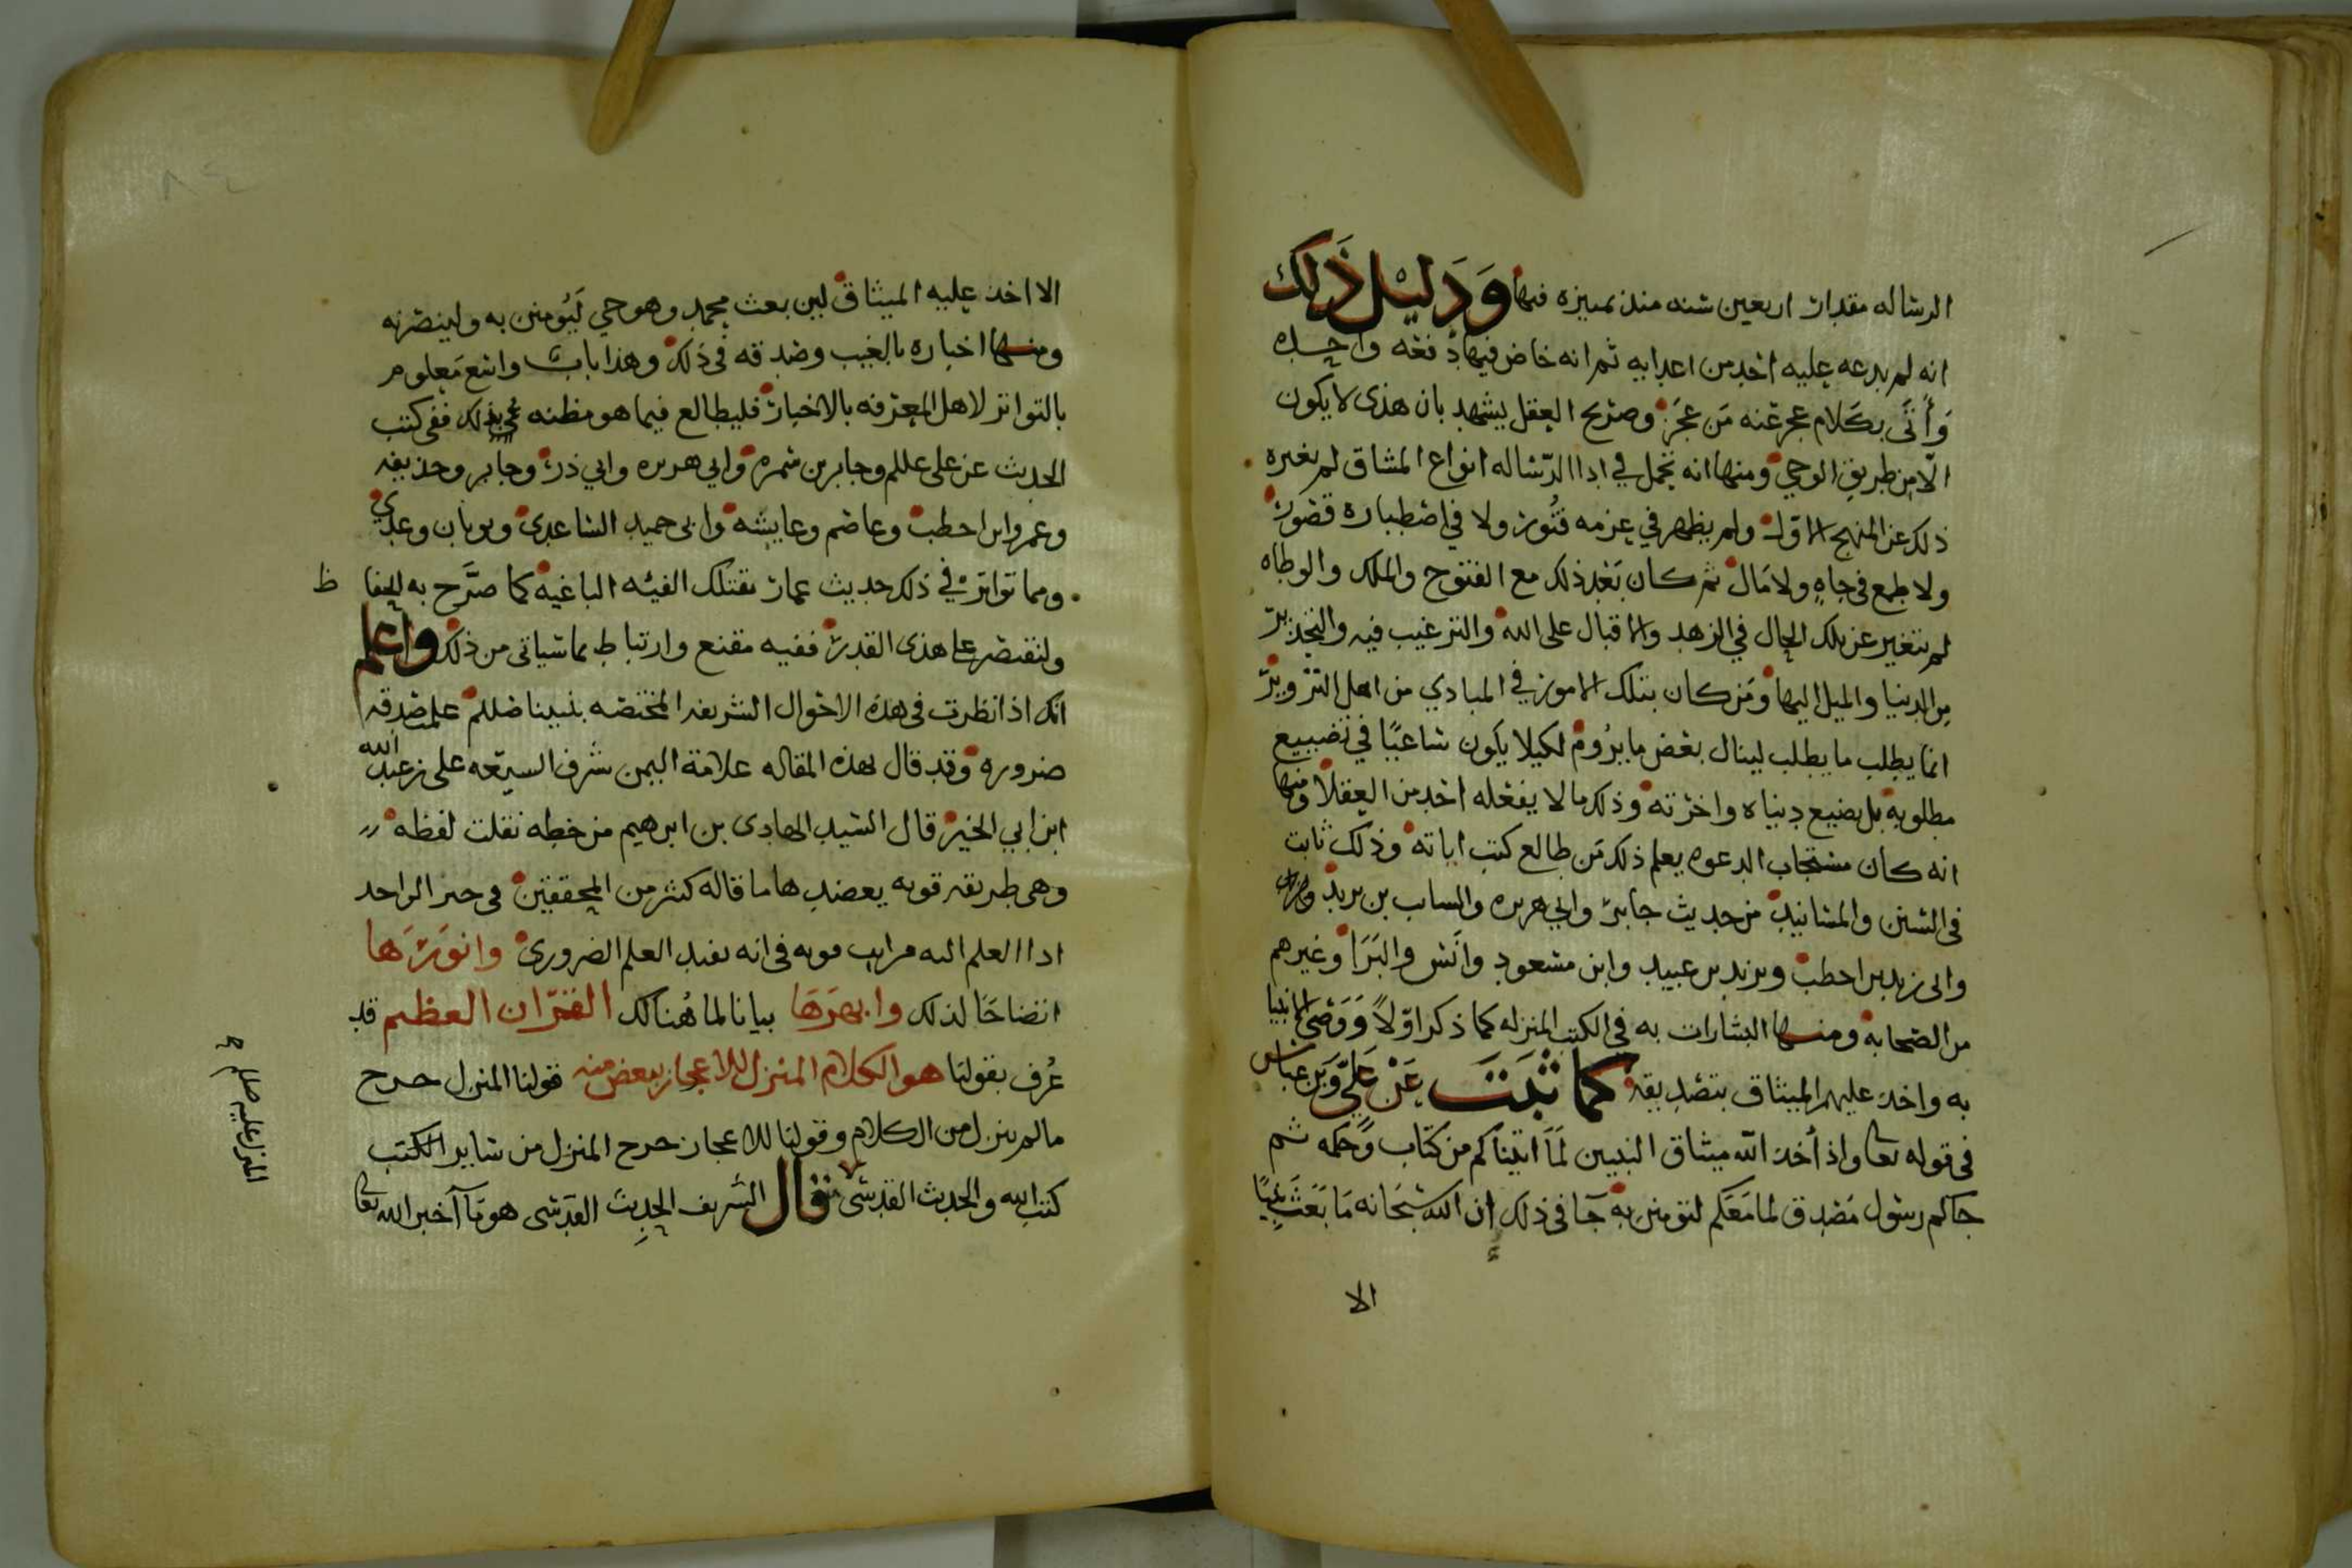 الرساله مقدار اربعين سنه منذ تمييزه فيها وَدَلِيْل ذَلِكَ
انه لم يدعه عليه احد من اعدايه ثم انه خاض فيها دفعه واحده
وَأَتَى بكَلام عجز عنه مَن عجَزَ وصريح العقل يشهد بان هذى لا يكون
الّا من طريق الوحي ومنها انه تحمل في ادا الرّساله انواع المشاق لم يغيره
ذلك عن المنهج الاول ولم يظهر في عزمه فتُور ولا في اصطباره قصور
ولا طمع في جاهٍ ولا مَال ثم كان بَعْد ذلك مع الفتوح والملك والوطاه
لم يتغير عن تلك الحال في الزهد والاقبال على الله والترغيب فيه والتحذير
من الدنيا والميل اليها ومَن كان بتلك الامور في المبادي من اهل التزوير
انما يطلب ما يطلب لينال بعض ما يرُوم لكيلا يكون ساعيًا في تضييع
مطلوبه بل يضيع دنياه واخرته وذلك ما لا يفعله احد من العقلا ومنها
انه كان مستجاب الدعوه يعلم ذلك مَن طالع كتب اياته وذلك ثابت
في السنن والمسانيد من حديث جابر وابي هريره والساب بن يزيد
وابى زيد بن احطب ويزيد بن عبيد وابن مسعود وانَس والبَرَا وغيرهم
من الصحابه ومنها البشارات به في الكتب المنزله كما ذكر اوّلًا وَوَصى الانبيا
به واخذ عليهم الميثاق بتصديقه كما ثبَتَ عَنْ عَلَيّ وَبن عباس
في قوله تعا واذ أخذ الله ميثاق النبيين لَمَا اتيناكم من كتاب وَحكمه ثم
جاكم رسول مُصدق لما مَعَكم لتومنن به جَا في ذلك ان الله سُبحَانه مَا بَعَثَ نبيًا
الا
الا اخذ عليه الميثاق لين بعث محمد وهو حي لَيُومنن به ولينصرنه
ومنها اخباره بالغيب وصدقه في ذلك وهذا باب واسع مَعلوم
بالتواتر لاهل المعرفه بالاخبار فليطالع فيما هو مظنه ذلك ففي كتب
الحديث عن على عللم وجابر بن سمره وابي هريره وابي ذر وجابر وحذيفه
وعمرو ابن احطب وعاصم وعايشه وابى حميد الساعدى وثوبان وعدي
ومما تواتر في ذلك حديث عمار تقتلك الفيه الباغيه كما صرَّح به الحفا ظ
ولنقتصر على هذى القدر ففيه مقنع وارتباط بما سياتى من ذلك واعلم
انك اذا نظرت في هذه الاحوال الشريفه المختصه بنبينا صللم علمت صدقه
ضروره وقد قال بهذه المقاله علامة اليمن شرف الشيعه على بن عبد الله
ابن ابي الخير قال السيد الهادى بن ابرهيم من خطه نقلت لفظه
وهى طريقه قويه يعضدها ما قاله كثير من المحققين في خبر الواحد
اذا العلم اليه مراتب قويه في انه يفيد العلم الضرورى وانوَرَها
اتضاحًا لذلك وابهرَهَا بيانا لما هُنالك القرّان العظيم قد
عُرف بقولنا هو الكلام المنزل للاعجاز ببعض منه فقولنا المنزل خرج
مالم ينزل من الكلام وقولنا للاعجاز خرج المنزل من ساير الكتب
كتب الله والحديث القدسى قال الشريف الحديث القدسى هو مَا أخبر الله تعا
المنزل عليه صللم ح